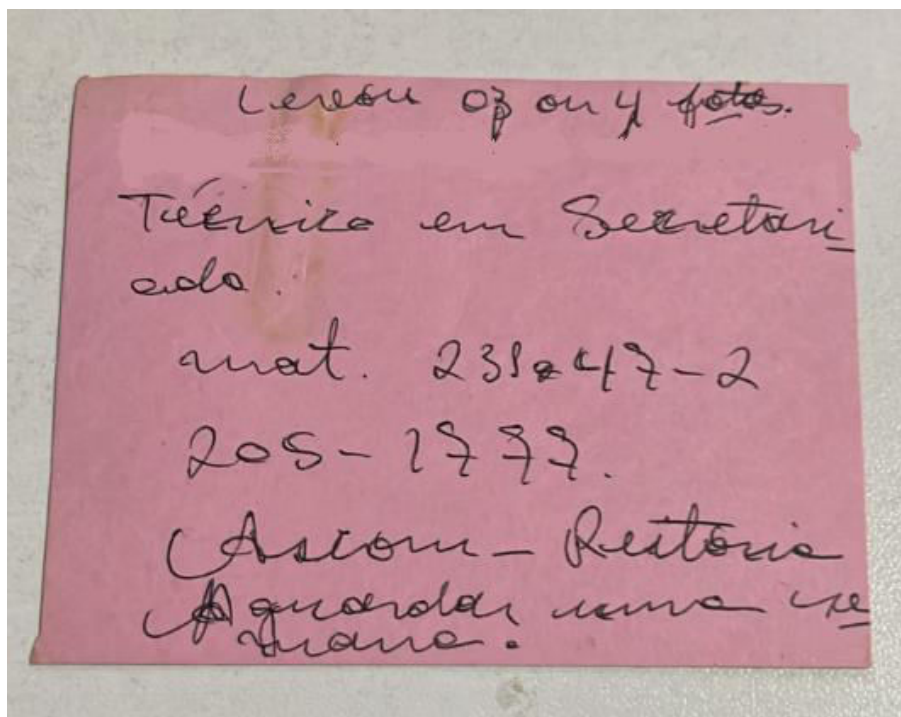 Levou 03 ou 4 fotos.
Técnico em Secretari
ado.
mat. 231247-2
205-1777.
Ascom - Reitoria
Aguardar uma se
mana.